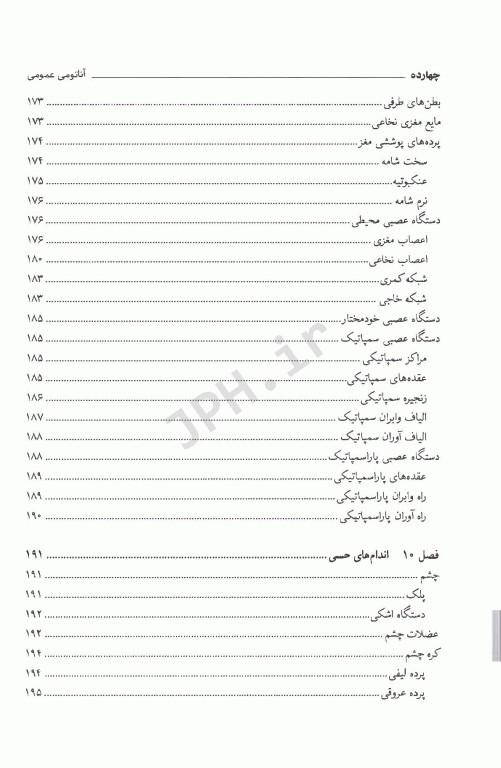 چهارده آناتومی عمومی
بطن‌های طرفی ۱۷۳
مایع مغزی نخاعی ۱۷۳
پرده‌های پوششی مغز ۱۷۴
سخت شامه ۱۷۴
عنکبوتیه ۱۷۵
نرم شامه ۱۷۶
دستگاه عصبی محیطی ۱۷۶
اعصاب مغزی ۱۷۶
اعصاب نخاعی ۱۸۰
شبکه کمری ۱۸۳
شبکه خاجی ۱۸۳
دستگاه عصبی خودمختار ۱۸۵
دستگاه عصبی سمپاتیک ۱۸۵
مراکز سمپاتیکی ۱۸۵
عقده‌های سمپاتیکی ۱۸۵
زنجیره سمپاتیکی ۱۸۶
الیاف وابران سمپاتیک ۱۸۷
الیاف آوران سمپاتیک ۱۸۸
دستگاه عصبی پاراسمپاتیک ۱۸۸
عقده‌های پاراسمپاتیکی ۱۸۹
راه وابران پاراسمپاتیکی ۱۸۹
راه آوران پاراسمپاتیکی ۱۹۰
فصل ۱۰ اندام‌های حسی ۱۹۱
چشم ۱۹۱
پلک ۱۹۱
دستگاه اشکی ۱۹۲
عضلات چشم ۱۹۲
کره چشم ۱۹۴
پرده لیفی ۱۹۴
پرده عروقی ۱۹۵
JPH.ir